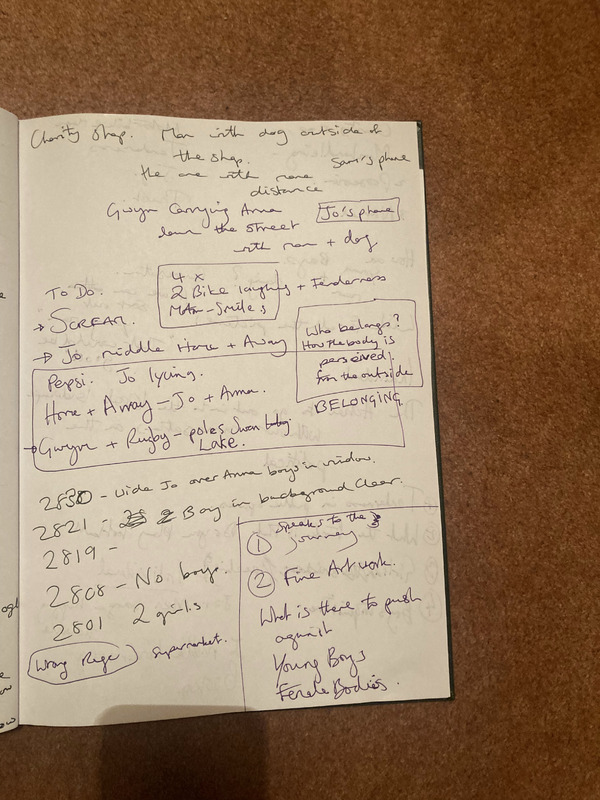 Charity Shop. Man with dog outside of
the shop.
Sam's phone
the one with more
distance
Gwyn Carrying Anna
Jo's phone
down the street
with man + dog
To Do.
4 x
2 Bike laughing + Tenderness
Motor - Smiles
→ SCREAM.
→ Jo. middle Home + Away
Who belongs?
How the body is
perceived.
from the outside
BELONGING
Pepsi. Jo lying.
Home + Away - Jo + Anna.
→ Gwyn + Rugby - poles Swan
Lake.
2830 - Wide Jo over Anna boys in window.
2821 - 2 Boy in background Clear.
2819 -
2808 - No boys.
2801 2 girls
Wrong Rege supermarket.
① Speaks to the
journey
② Fine Art work.
What is there to push
against
Young Boys
Female Bodies.